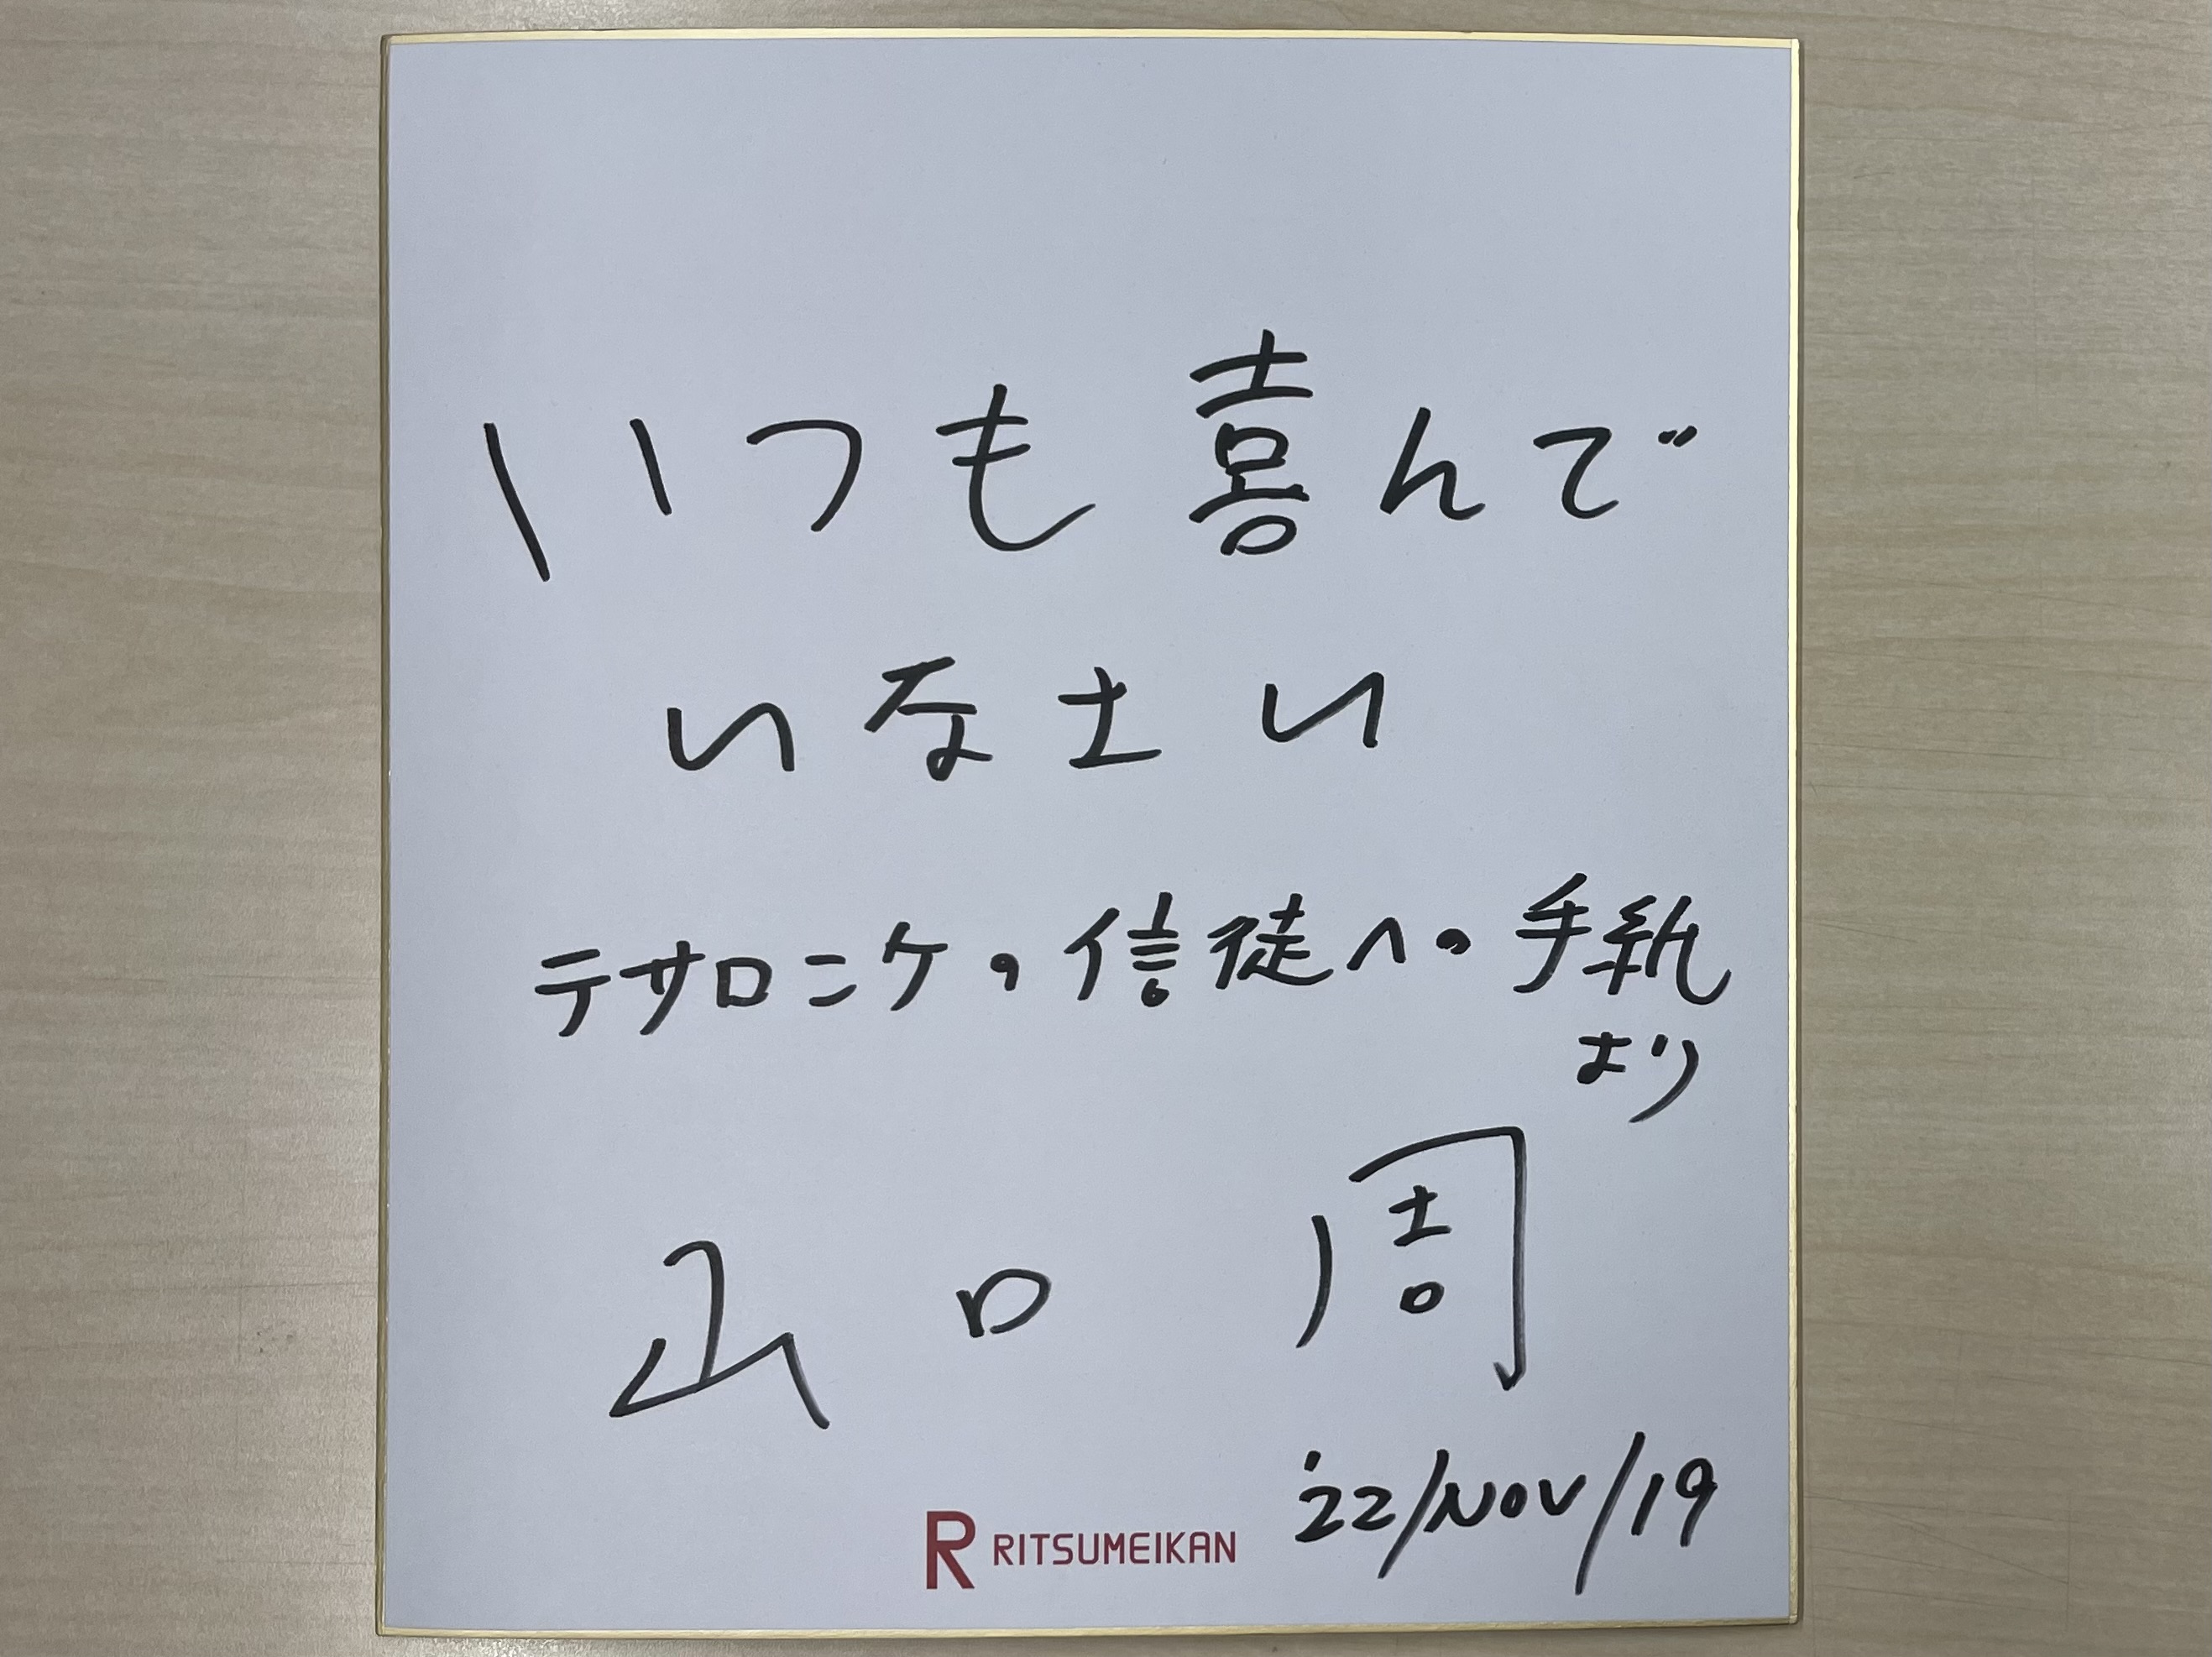 いつも喜んで
いなさい
テサロニケの信徒への手紙
より
山口 周
'22/NOV/19
R RITSUMEIKAN